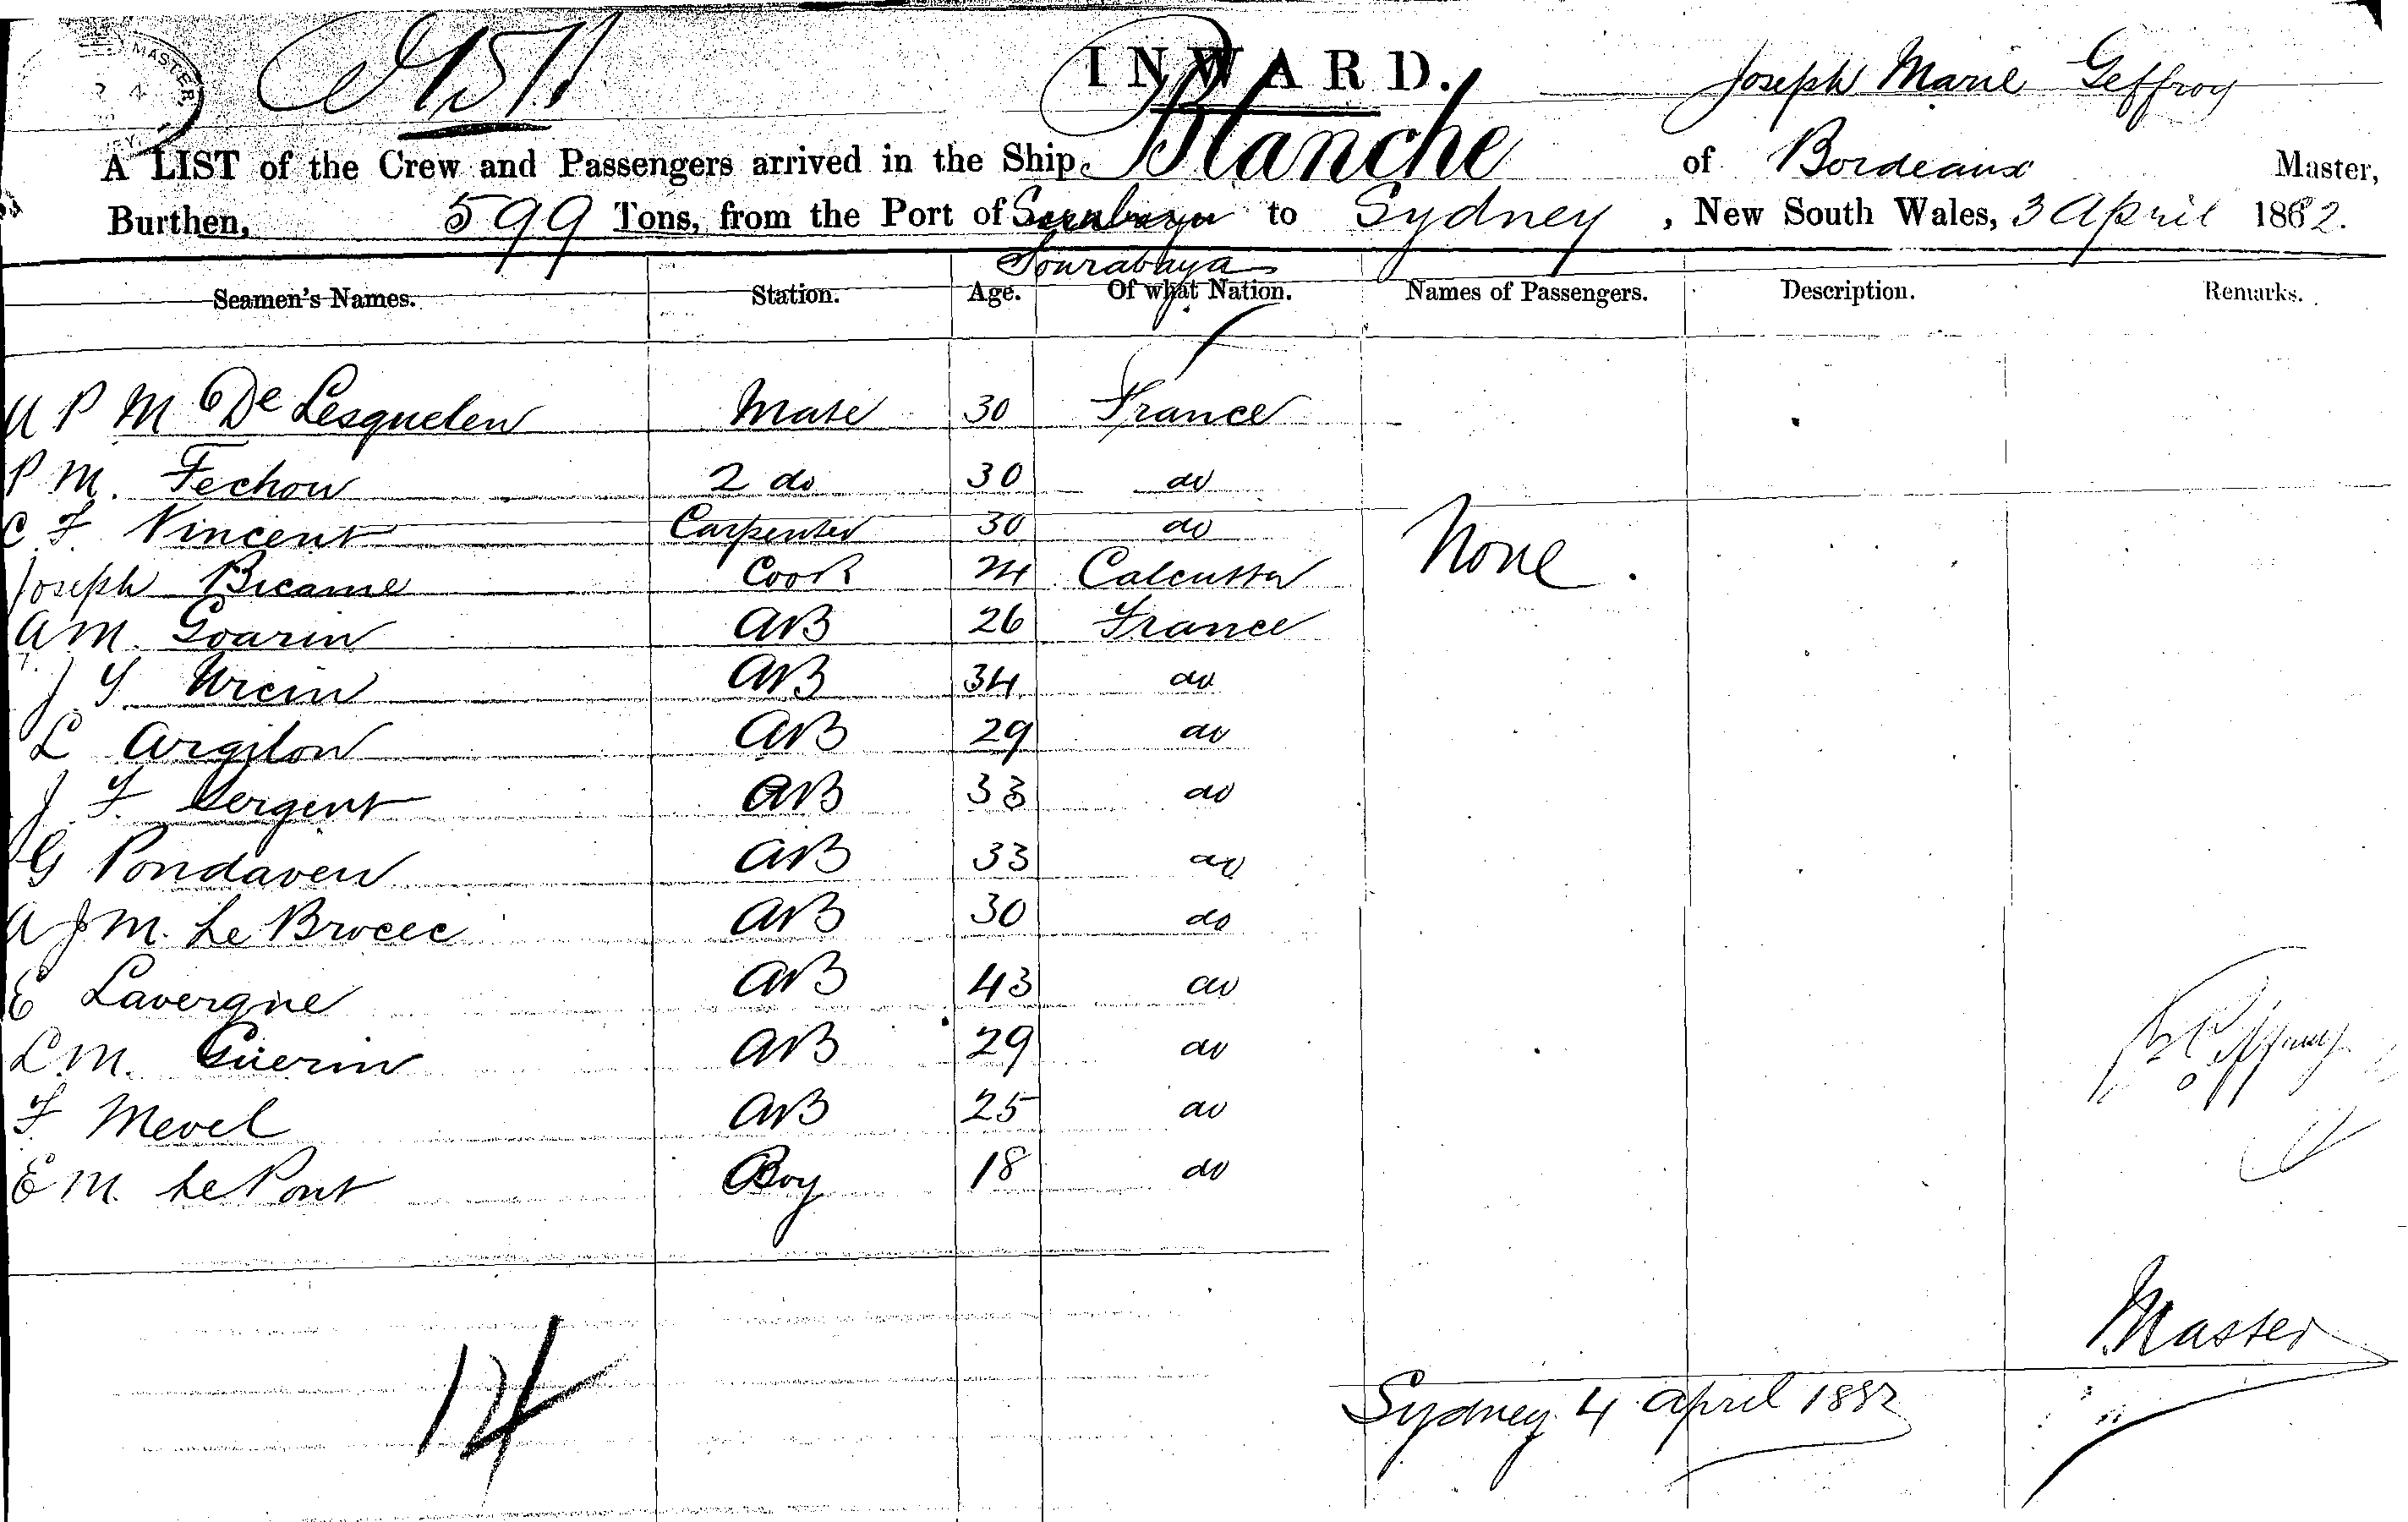 MASTER
I N W A R D.
Joseph Marie Geffroy
A LIST of the Crew and Passengers arrived in the Ship Blanche of Bordeaux Master,
Burthen, 599 Tons, from the Port of to Sydney, New South Wales, 3 April 1882.
Sourabaya
Seamen's Names. Station. Age. Of what Nation. Names of Passengers. Description. Remarks.
A P M De Lesquelen Mate 30 France
P M. Fechou 2 do 30 do
C F Vincent Carpenter 30 do
None.
Joseph Bicame Cook 24 Calcutta
A M. Goarin AB 26 France
J Y AB 34 do
L Argilon AB 29 do
J F Sergent AB 33 do
G Pondaven AB 33 do
A J M. Le Brocec AB 30 do
E Lavergne AB 43 do
L M. Guerin AB 29 do
F Mevel AB 25 do
E M. Le Pont Boy 18 do
Master
14
Sydney 4 April 1882